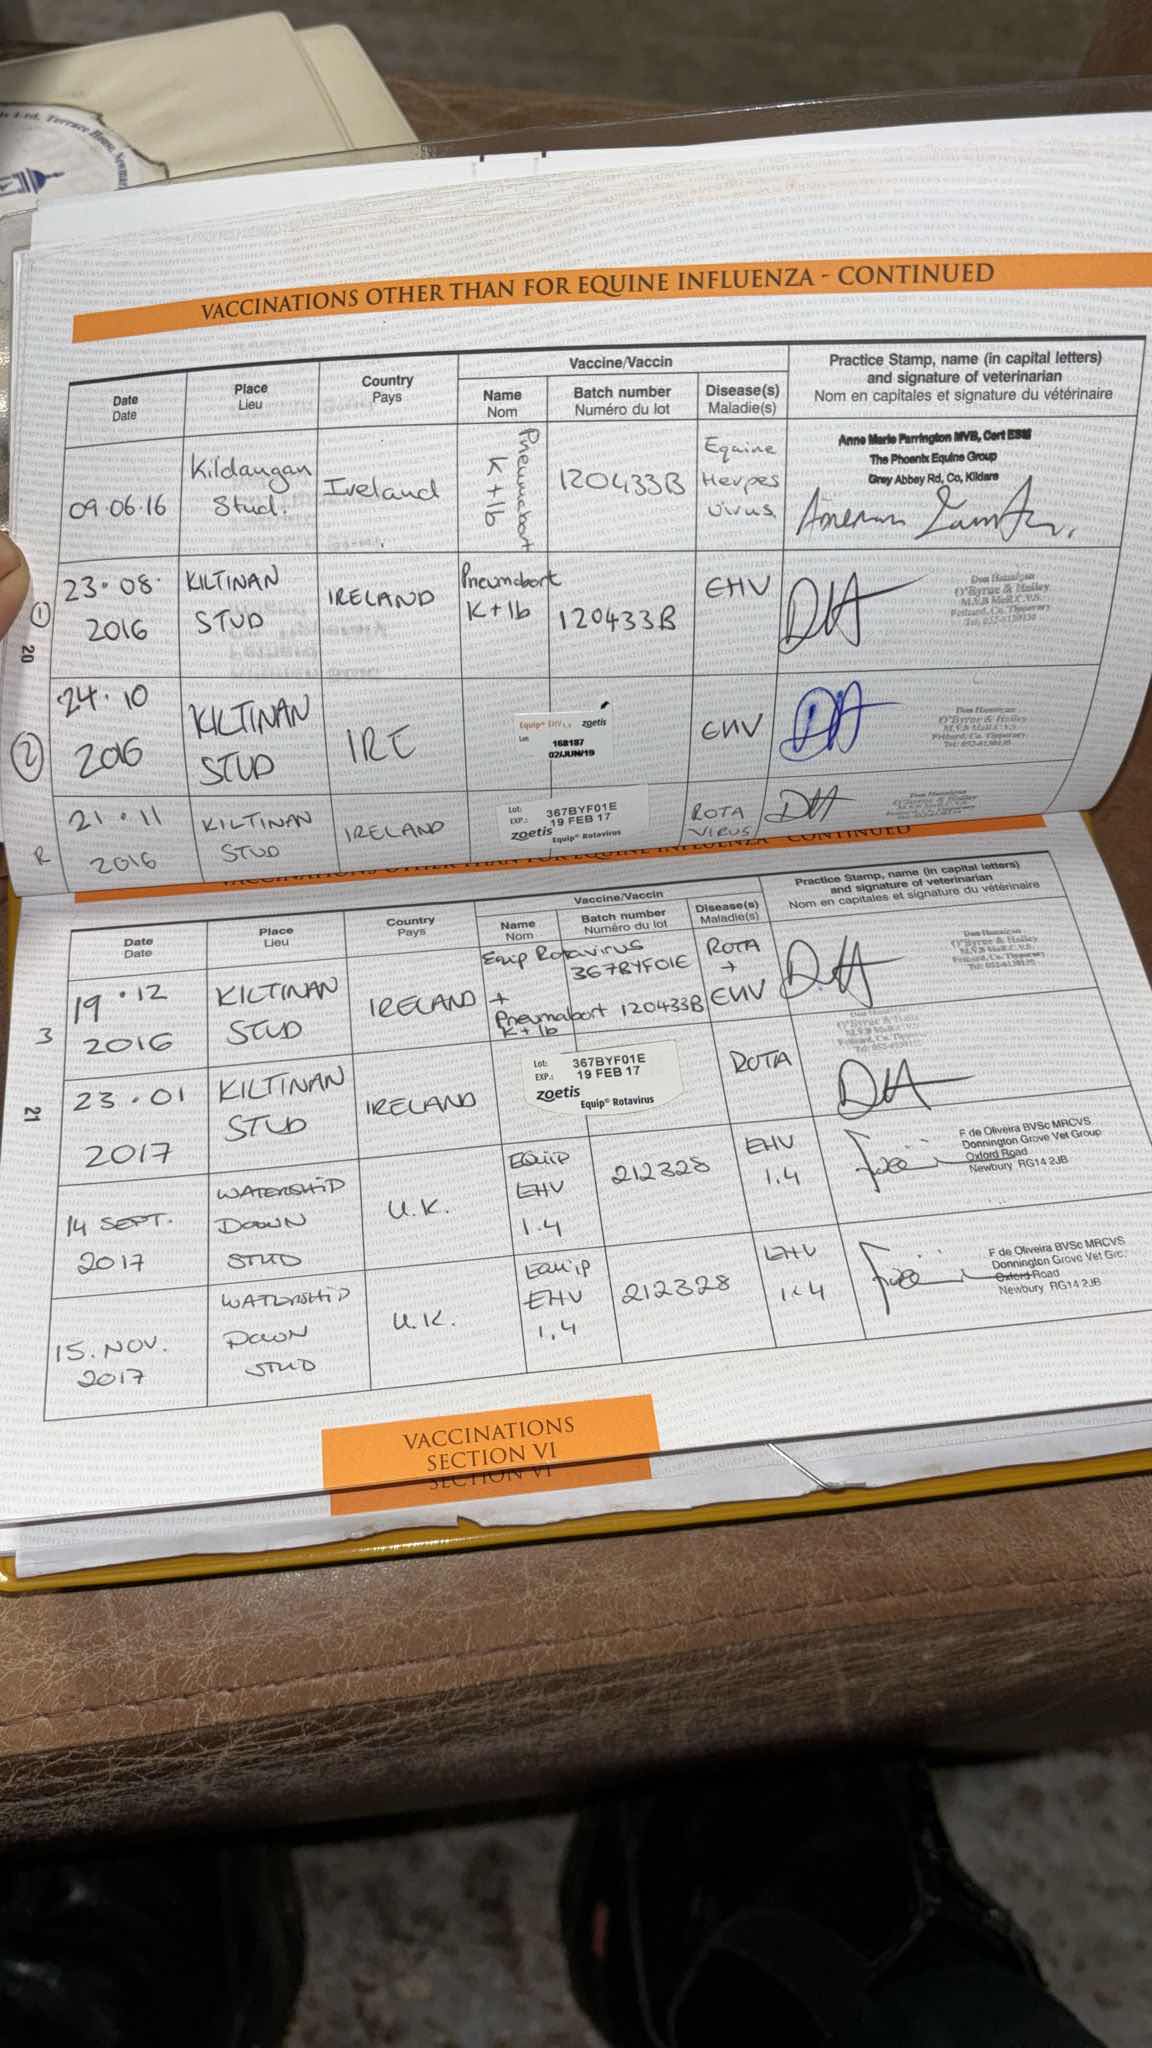 Terrace House, Newmar
VACCINATIONS OTHER THAN FOR EQUINE INFLUENZA - CONTINUED
Date
Date
Place
Lieu
Country
Pays
Vaccine/Vaccin
Name
Nom
Batch number
Numéro du lot
Disease(s)
Maladie(s)
Practice Stamp, name (in capital letters)
and signature of veterinarian
Nom en capitales et signature du vétérinaire
09.06.16
Kildangan
Stud.
Ireland
Pneumabort
K+1b
120433B
Equine
Herpes
Virus.
Anne Marie Parrington MVB, Cert ESM
The Phoenix Equine Group
Grey Abbey Rd, Co, Kildare
1
23.08.
2016
KILTINAN
STUD
IRELAND
Pneumabort
K+1b
120433B
EHV
DH
O'Byrne & Halley
M.V.B MRCVS.
Fethard, Co. Tipperary
20
2
24.10
2016
KILTINAN
STUD
IRE
Equip® EHV1,4 zoetis
Lot
168187
02/JUN/19
EHV
DH
O'Byrne & Halley
R
21.11
2016
KILTINAN
STUD
IRELAND
Lot: 367BYF01E
EXP.: 19 FEB 17
zoetis Equip® Rotavirus
ROTA
VIRUS
DH
O'Byrne & Halley
CONTINUED
Date
Date
Place
Lieu
Country
Pays
Vaccine/Vaccin
Name
Nom
Batch number
Numéro du lot
Disease(s)
Maladie(s)
Practice Stamp, name (in capital letters)
and signature of veterinarian
Nom en capitales et signature du vétérinaire
3
19.12
2016
KILTINAN
STUD
IRELAND
Equip Rotavirus
367BYF01E
+
Pneumabort 120433B
K+1b
ROTA
+
EHV
DH
O'Byrne & Halley
21
23.01
2017
KILTINAN
STUD
IRELAND
Lot: 367BYF01E
EXP.: 19 FEB 17
zoetis
Equip® Rotavirus
ROTA
DH
14 SEPT.
2017
WATERSHID
DOWN
STUD
U.K.
EQUIP
EHV
1.4
212328
EHV
1.4
F de Oliveira BVSc MRCVS
Donnington Grove Vet Group
Oxford Road
Newbury RG14 2JB
15. NOV.
2017
WATERSHID
DOWN
STUD
U.K.
EQUIP
EHV
1.4
212328
EHV
1.4
F de Oliveira BVSc MRCVS
Donnington Grove Vet Gro
Oxford Road
Newbury RG14 2JB
VACCINATIONS
SECTION VI
SECTION VI